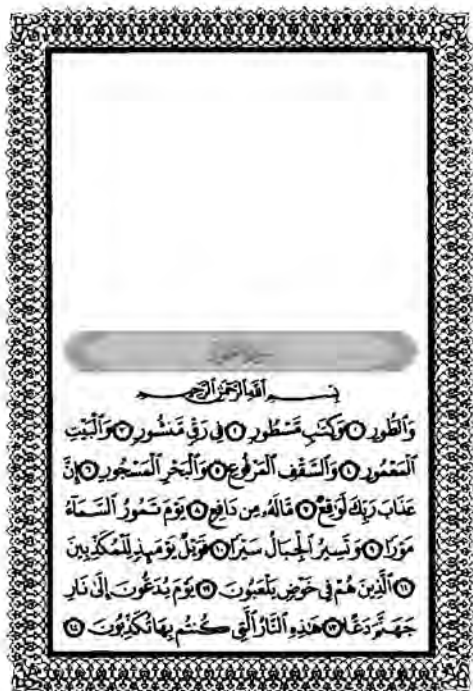 سورة الطور
بِسْمِ ٱللَّهِ ٱلرَّحْمَٰنِ ٱلرَّحِيمِ
وَٱلطُّورِ ١ وَكِتَٰبٍ مَّسْطُورٍ ٢ فِى رَقٍّ مَّنشُورٍ ٣ وَٱلْبَيْتِ
ٱلْمَعْمُورِ ٤ وَٱلسَّقْفِ ٱلْمَرْفُوعِ ٥ وَٱلْبَحْرِ ٱلْمَسْجُورِ ٦ إِنَّ
عَذَابَ رَبِّكَ لَوَٰقِعٌ ٧ مَّا لَهُۥ مِن دَافِعٍ ٨ يَوْمَ تَمُورُ ٱلسَّمَآءُ
مَوْرًا ٩ وَتَسِيرُ ٱلْجِبَالُ سَيْرًا ١٠ فَوَيْلٌ يَوْمَئِذٍ لِّلْمُكَذِّبِينَ
١١ ٱلَّذِينَ هُمْ فِى خَوْضٍ يَلْعَبُونَ ١٢ يَوْمَ يُدَعُّونَ إِلَىٰ نَارِ
جَهَنَّمَ دَعًّا ١٣ هَٰذِهِ ٱلنَّارُ ٱلَّتِى كُنتُم بِهَا تُكَذِّبُونَ ١٤